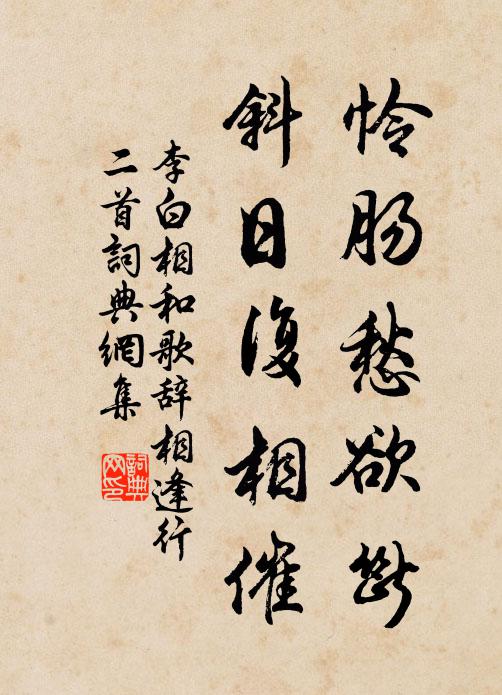 怜肠愁欲断
斜日復相催
李白相和歌辞相逢行
二首詞典網集
詞典
网印